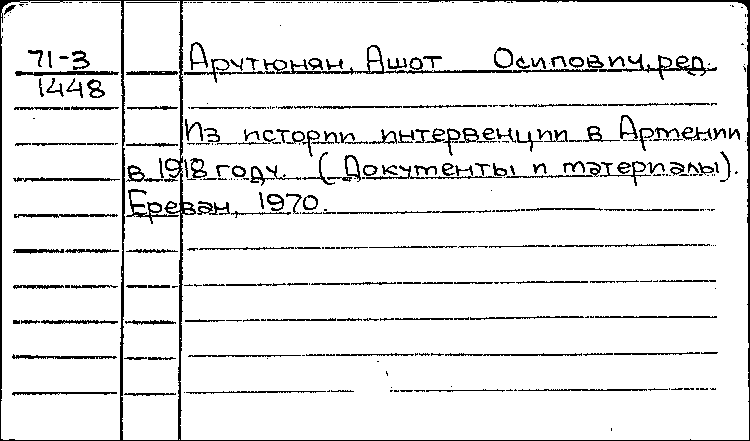 71-3 Арутюнян, Ашот Осипович, ред.
1448
Из истории интервенции в Армении
в 1918 году. (Документы и материалы).
Ереван, 1970.